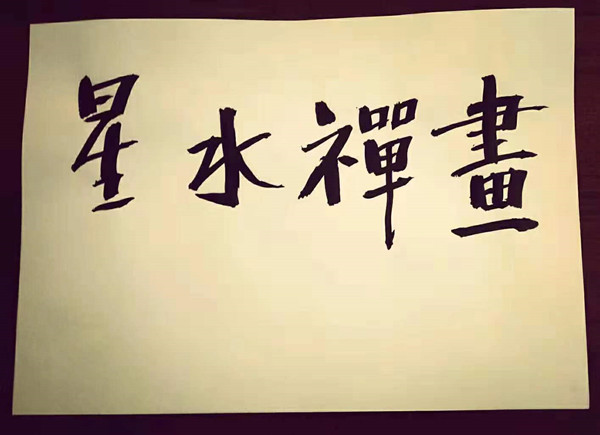 星水禪畫